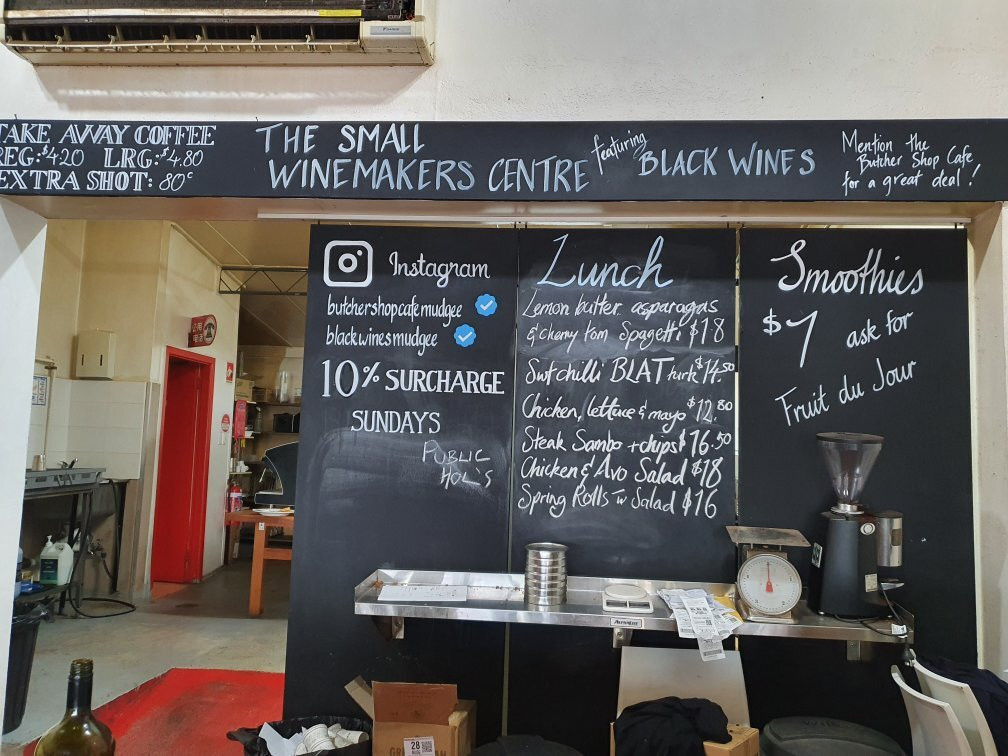 TAKE AWAY COFFEE
REG: $4.20 LRG: $4.80
EXTRA SHOT: 80c
THE SMALL
WINEMAKERS CENTRE
featuring
BLACK WINES
Mention the
Butcher Shop Cafe
for a great deal!
Instagram
butchershopcafemudgee
blackwinesmudgee
10% SURCHARGE
SUNDAYS
PUBLIC
HOL'S
Lunch
Lemon butter asparagas
& cherry tom Spagetti $18
Swt chilli BLAT turk $14.50
Chicken, lettuce & mayo $12.80
Steak Sambo + chips $16.50
Chicken & Avo Salad $18
Spring Rolls Tw Salad $16
Smoothies
$7 ask for
Fruit du Jour
28